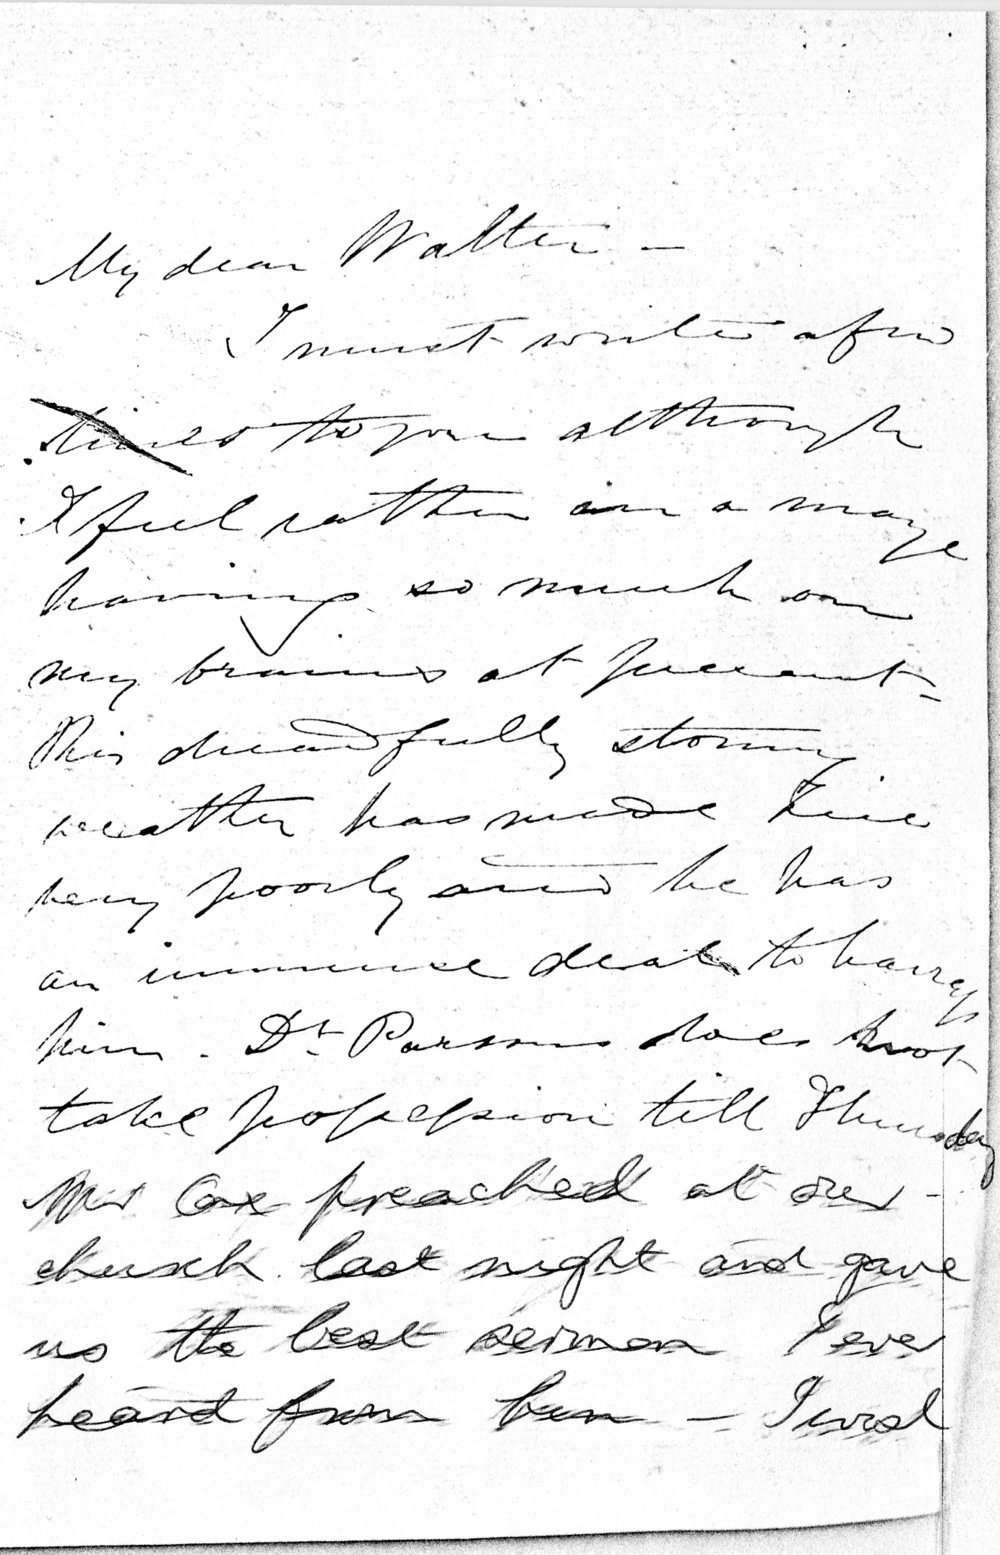 My dear Walter —
I must write a few
lines to you although
I feel rather in a maze
having so much on
my brains at present -
This dreadfully stormy
weather has made
very poorly and he has
an immense deal to harass
him. Dr. Parsons does not
take possession till Thursday
Mr Cox preached at our -
church last night and gave
us the best sermon I ever
heard from him — I wish